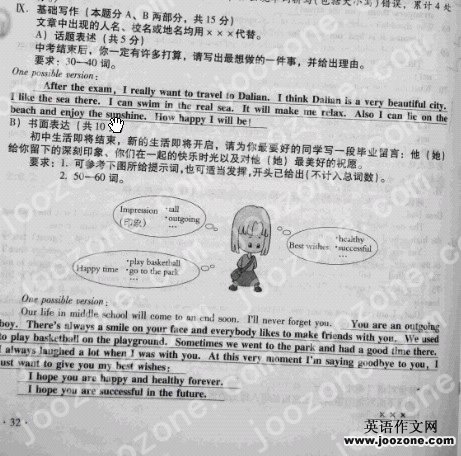 错误，累计4处
IX. 基础写作（本题分 A、B 两部分，共 15 分）
文章中出现的人名、校名或地名均用×××代替。
A）话题表达（共 5 分）
中考结束后，你一定有许多打算，请写出最想做的一件事，并给出理由。
要求：30—40 词。
One possible version:
After the exam, I really want to travel to Dalian. I think Dalian is a very beautiful city.
I like the sea there. I can swim in the real sea. It will make me relax. Also I can lie on the
beach and enjoy the sunshine. How happy I will be!
B）书面表达（共 10
初中生活即将结束，新的生活即将开启，请为你最要好的同学写一段毕业留言：他（她）
给你留下的深刻印象、你们在一起的快乐时光以及对他（她）最美好的祝愿。
要求：1. 可参考下图所给提示词，也可适当发挥，开头已给出(不计入总词数)。
2. 50—60 词。
Impression
(印象)
·tall
·outgoing
...
Happy time
·play basketball
·go to the park
...
Best wishes
·healthy
·successful
...
One possible version:
Our life in middle school will come to an end soon. I'll never forget you. You are an outgoing
boy. There's always a smile on your face and everybody likes to make friends with you. We used
to play basketball on the playground. Sometimes we went to the park and had a good time there.
I always laughed a lot when I was with you. At this very moment I'm saying goodbye to you, I
just want to give you my best wishes:
I hope you are happy and healthy forever.
I hope you are successful in the future.
×××
· 32 ·
英语作文网
www.joozone.com